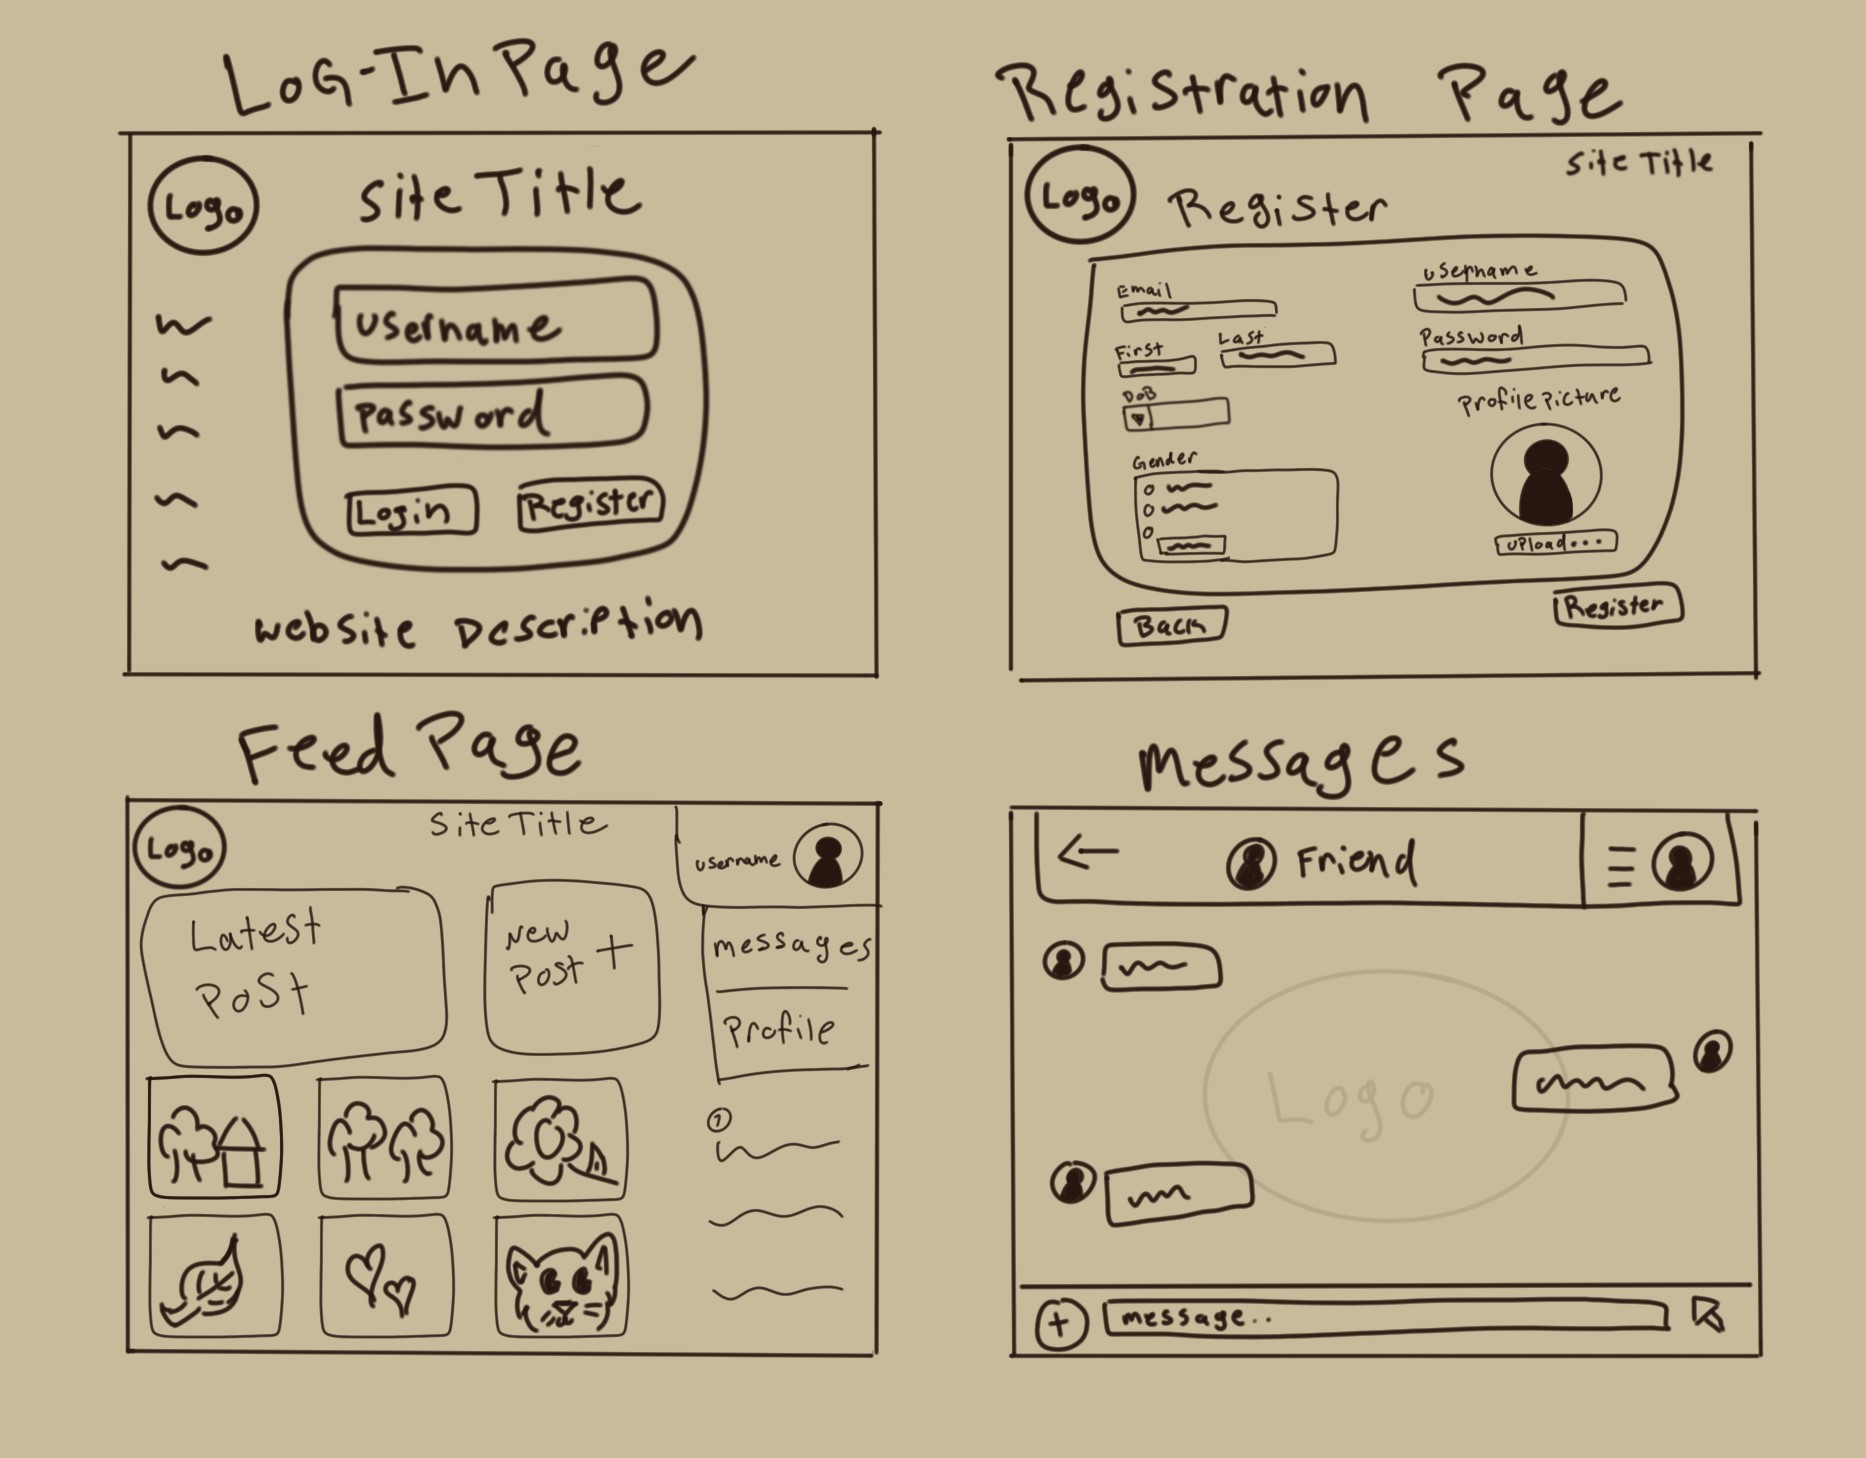 Log-In Page
Logo
Site Title
username
Password
Login
Register
website Description
Registration Page
Logo
Register
Site Title
Email
First
Last
DoB
Gender
username
Password
Profile picture
upload...
Back
Register
Feed Page
Logo
Site Title
username
Latest
Post
New
Post +
messages
Profile
messages
Friend
Logo
+
message..